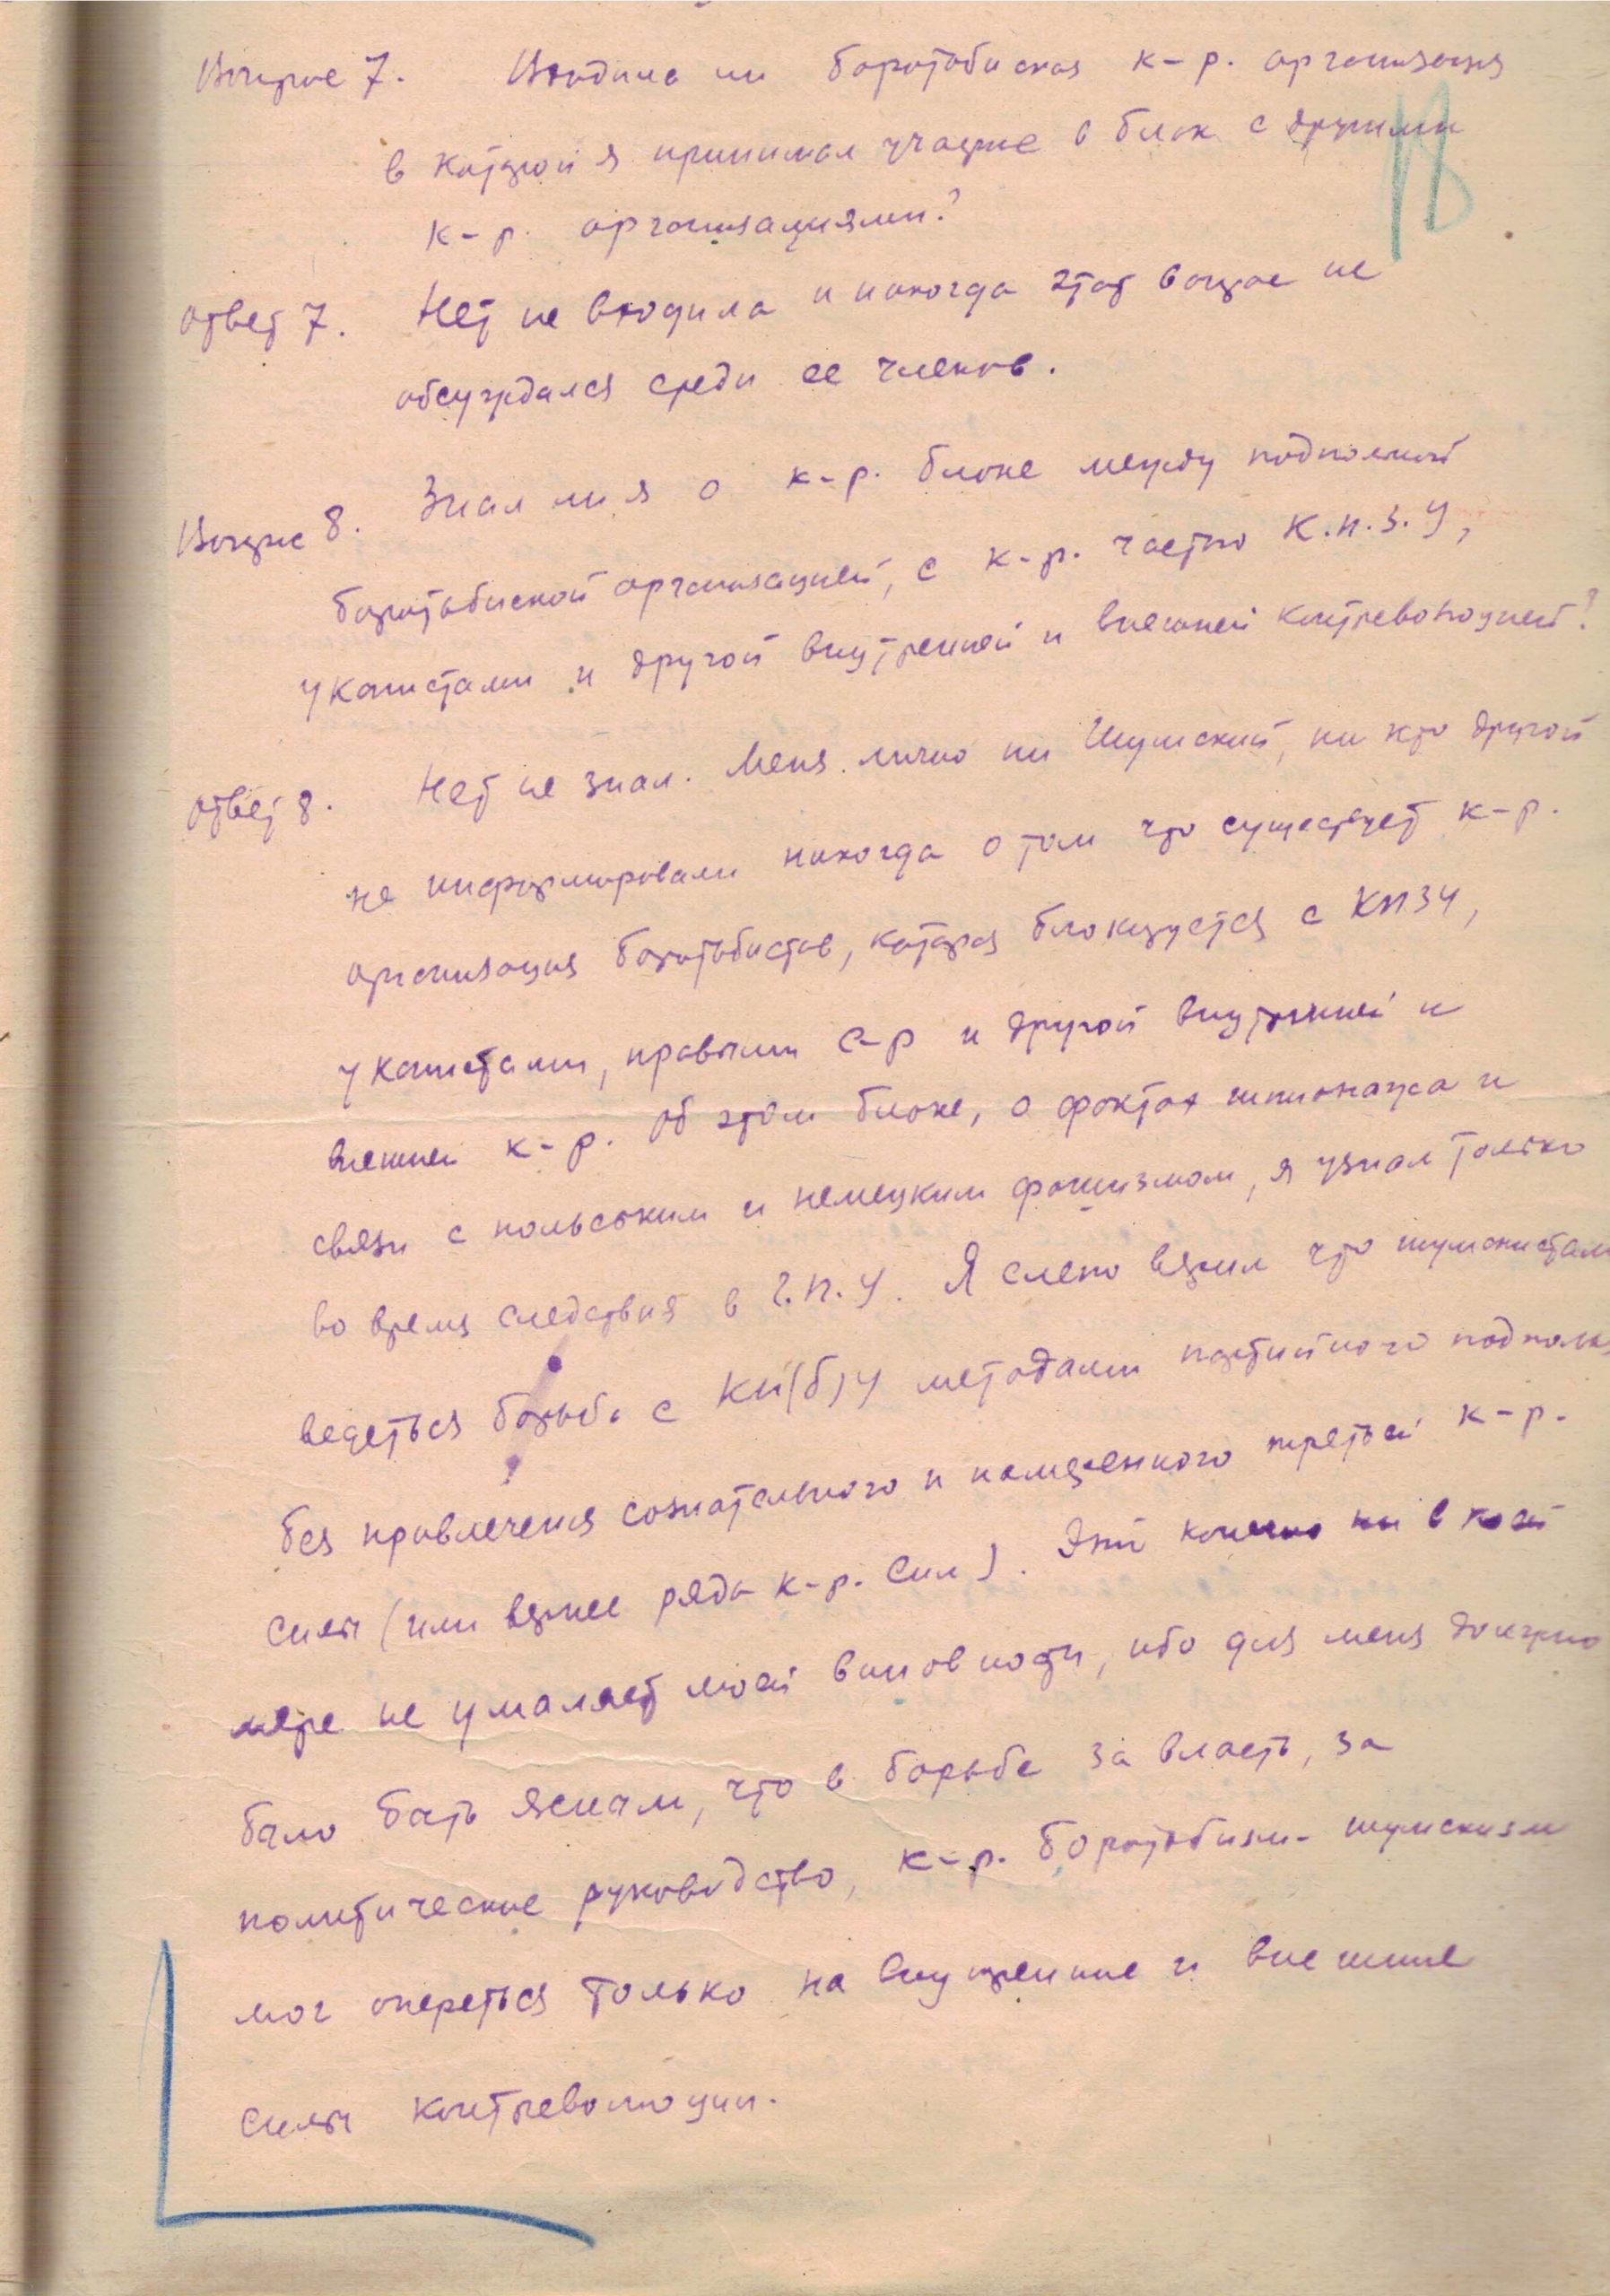 Вопрос 7. Входила ли боротьбиская к-р. организация
в которой я принимал участие в блок с другими
к-р. организациями?
Ответ 7. Нет не входила и никогда этот вопрос не
обсуждался среди ее членов.
Вопрос 8. Знал ли я о к-р. блоке между подпольной
боротьбиской организацией, с к-р. частью К.П.З.У,
укапистами и другой внутренней и внешней контрреволюцией?
Ответ 8. Нет не знал. Меня лично ни Шумский, ни кто другой
не информировали никогда о том что существует к-р.
организация боротьбистов, которая блокируется с КПЗУ,
укапистами, правыми с-р и другой внутренней и
внешней к-р. Об этом блоке, о фактах шпионажа и
связи с польським и немецким фашизмом, я узнал только
во время следствия в Г.П.У. Я слепо верил что шумскистами
ведеться борьба с КП(б)У методами партийного подполья
без привлечения сознательного и намеренного третьей к-р.
силы (или вернее ряда к-р. сил). Это конечно ни в коей
мере не умаляет моей виновности, ибо для меня должно
было быть ясным, что в борьбе за власть, за
политическое руководство, к-р. боротьбизм-шумскизм
мог опереться только на внутренние и внешние
силы контрреволюции.